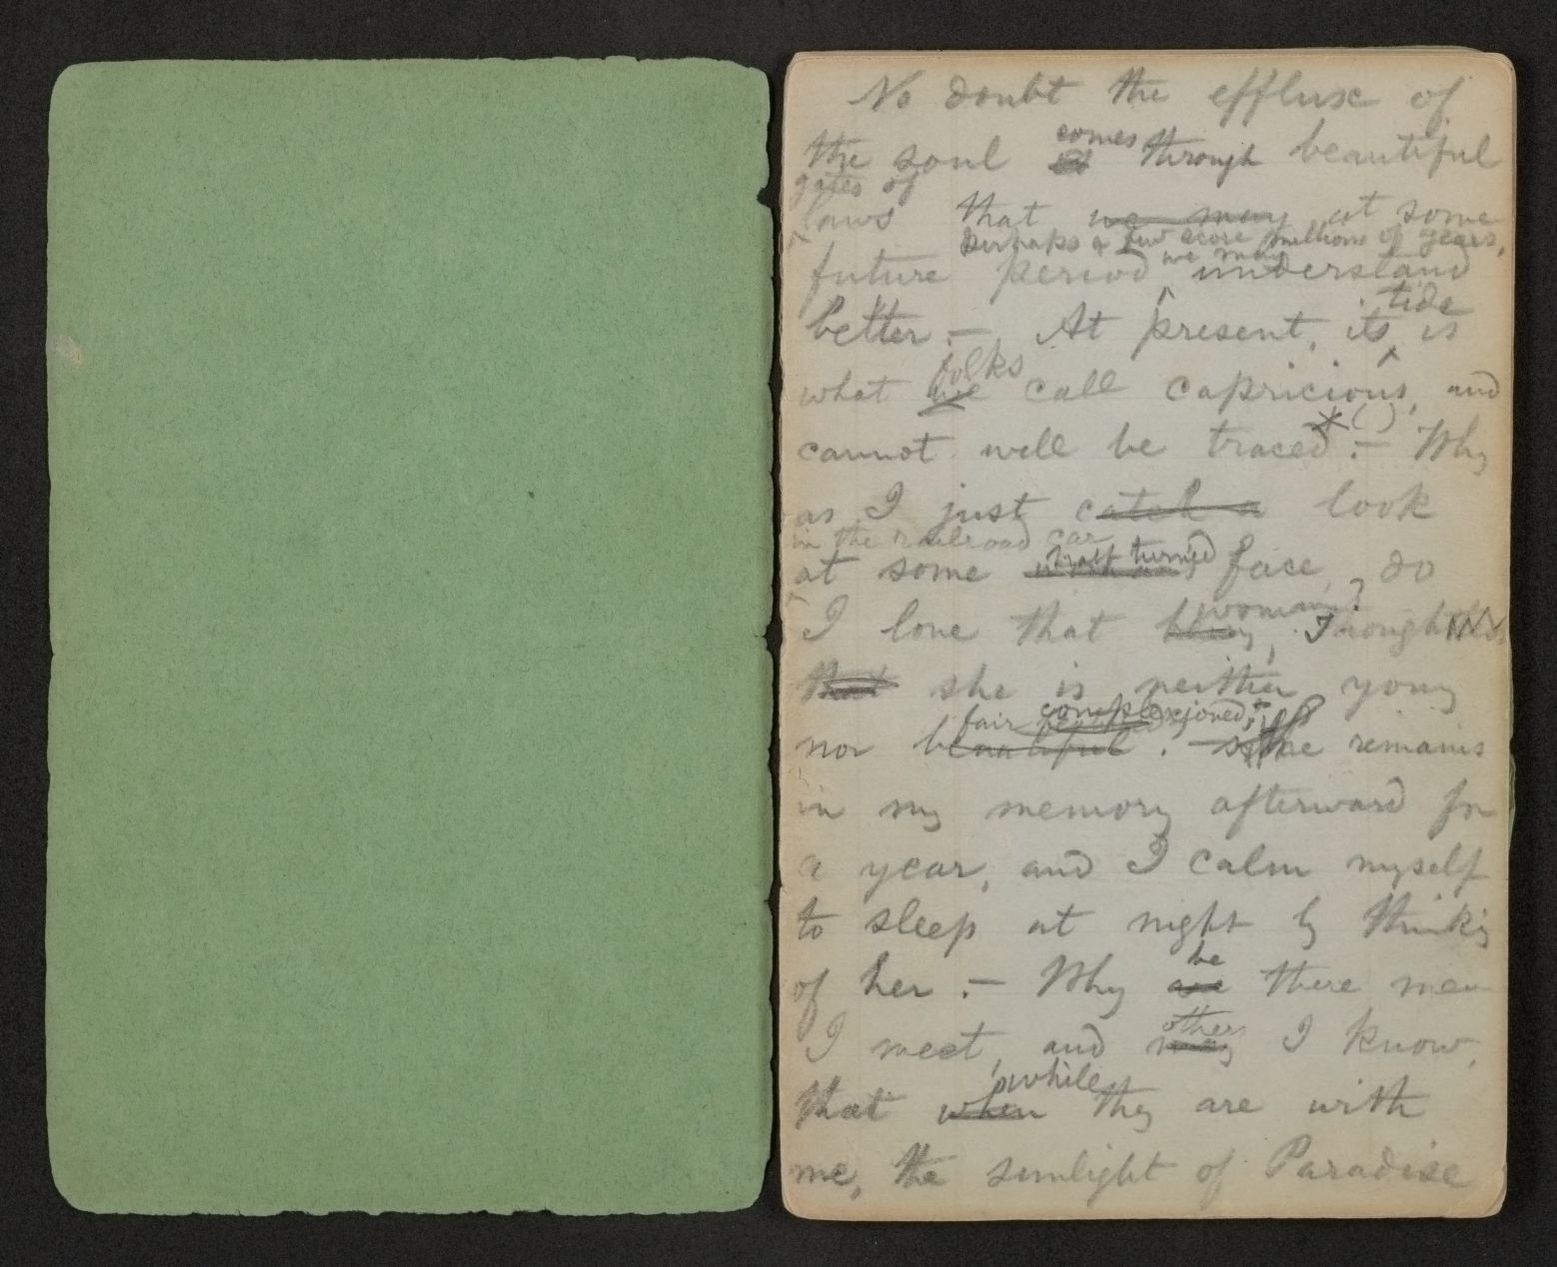 No doubt the efflux of
comes
the soul is through beautiful
gates of
laws that we may at some
perhaps a few score millions of years,
we may
future period understand
tide
better.— At present, its is
folks
what we call capricious, and
* ( )
cannot well be traced.— Why
as I just catch a look
in the railroad car
half turned
at some face, do
woman?
I love that being, Though
that she is neither young
fair complexioned;
nor beautiful. — She remains
in my memory afterward for
a year, and I calm myself
to sleep at night by thinking
of her.— Why
be
are there men
others
I meet, and many I know,
while
that when they are with
me, the sunlight of Paradise